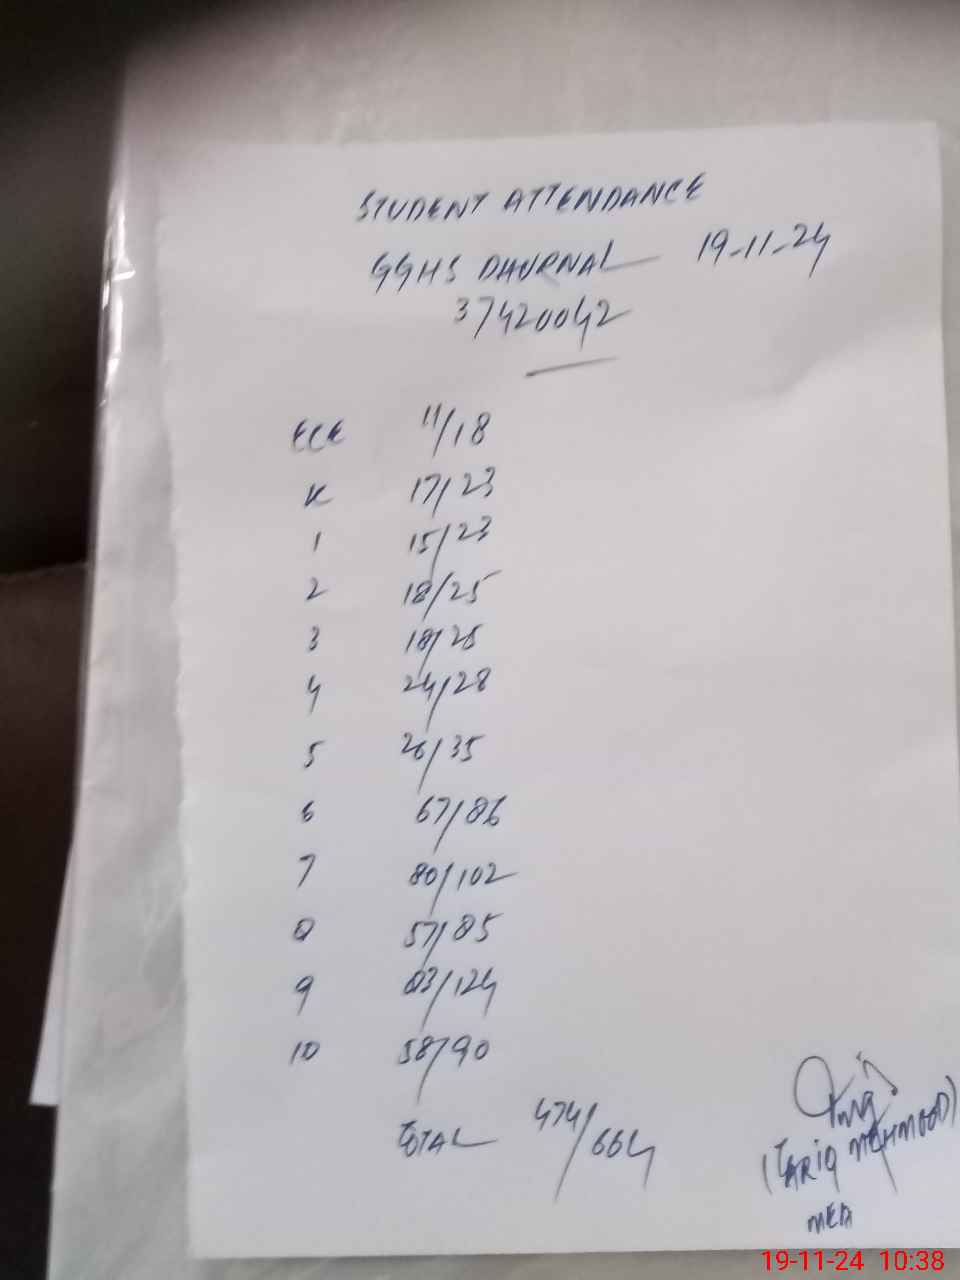 STUDENT ATTENDANCE
GGHS DHURNAL 19-11-24
37420042
ECE 11/18
K 17/23
1 15/23
2 18/25
3 18/25
4 24/28
5 26/35
6 67/86
7 80/102
8 57/85
9 83/124
10 58/90
TOTAL 474/664
(TARIQ MEHMOOD)
MEA
19-11-24 10:38